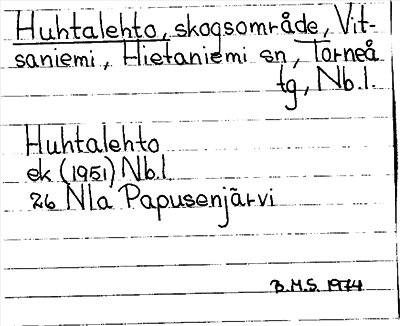 Huhtalehto, skogsområde, Vit-
saniemi, Hietaniemi sn, Torneå
tg, Nb.l.
Huhtalehto
ek (1951) Nb.l
26 Nla Papusenjärvi
B.M.S. 1974